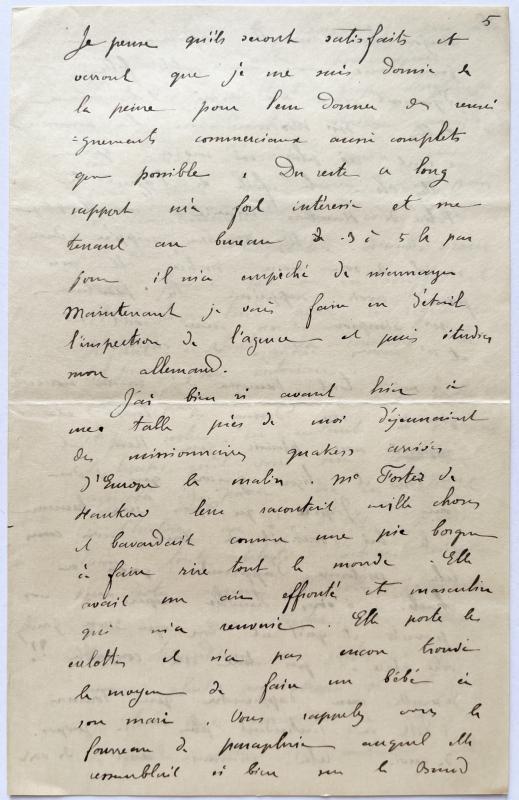 5
Je pense qu'ils seront satisfaits et
verront que je me suis donné de
la peine pour leur donner des rensei
=gnements commerciaux aussi complets
que possible. Du reste ce long
rapport m'a fort intéressé et me
tenant au bureau de 3 à 5 h par
jour il m'a empêché de m'ennuyer
Maintenant je vais faire en détail
l'inspection de l'agence et puis étudier
mon allemand.
J'ai bien ri avant hier à
une table près de moi déjeunaient
des missionnaires quakers arrivés
d'Europe le matin. Me Foster de
Hankow leur racontait mille choses
et bavardait comme une pie borgne
à faire rire tout le monde. Elle
avait un air effronté et masculin
qui m'a
Elle porte les
culottes et n'a pas encore trouvé
le moyen de faire un bébé à
son mari. Vous rappelez vous le
fourreau de parapluie auquel elle
ressemblait si bien sur le Bund